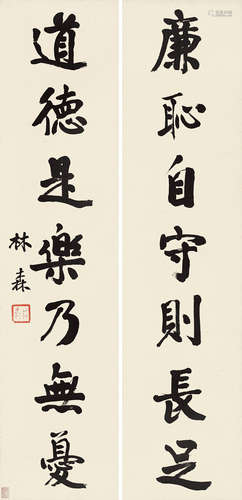 廉恥自守則長足
道德是樂乃無憂
林森